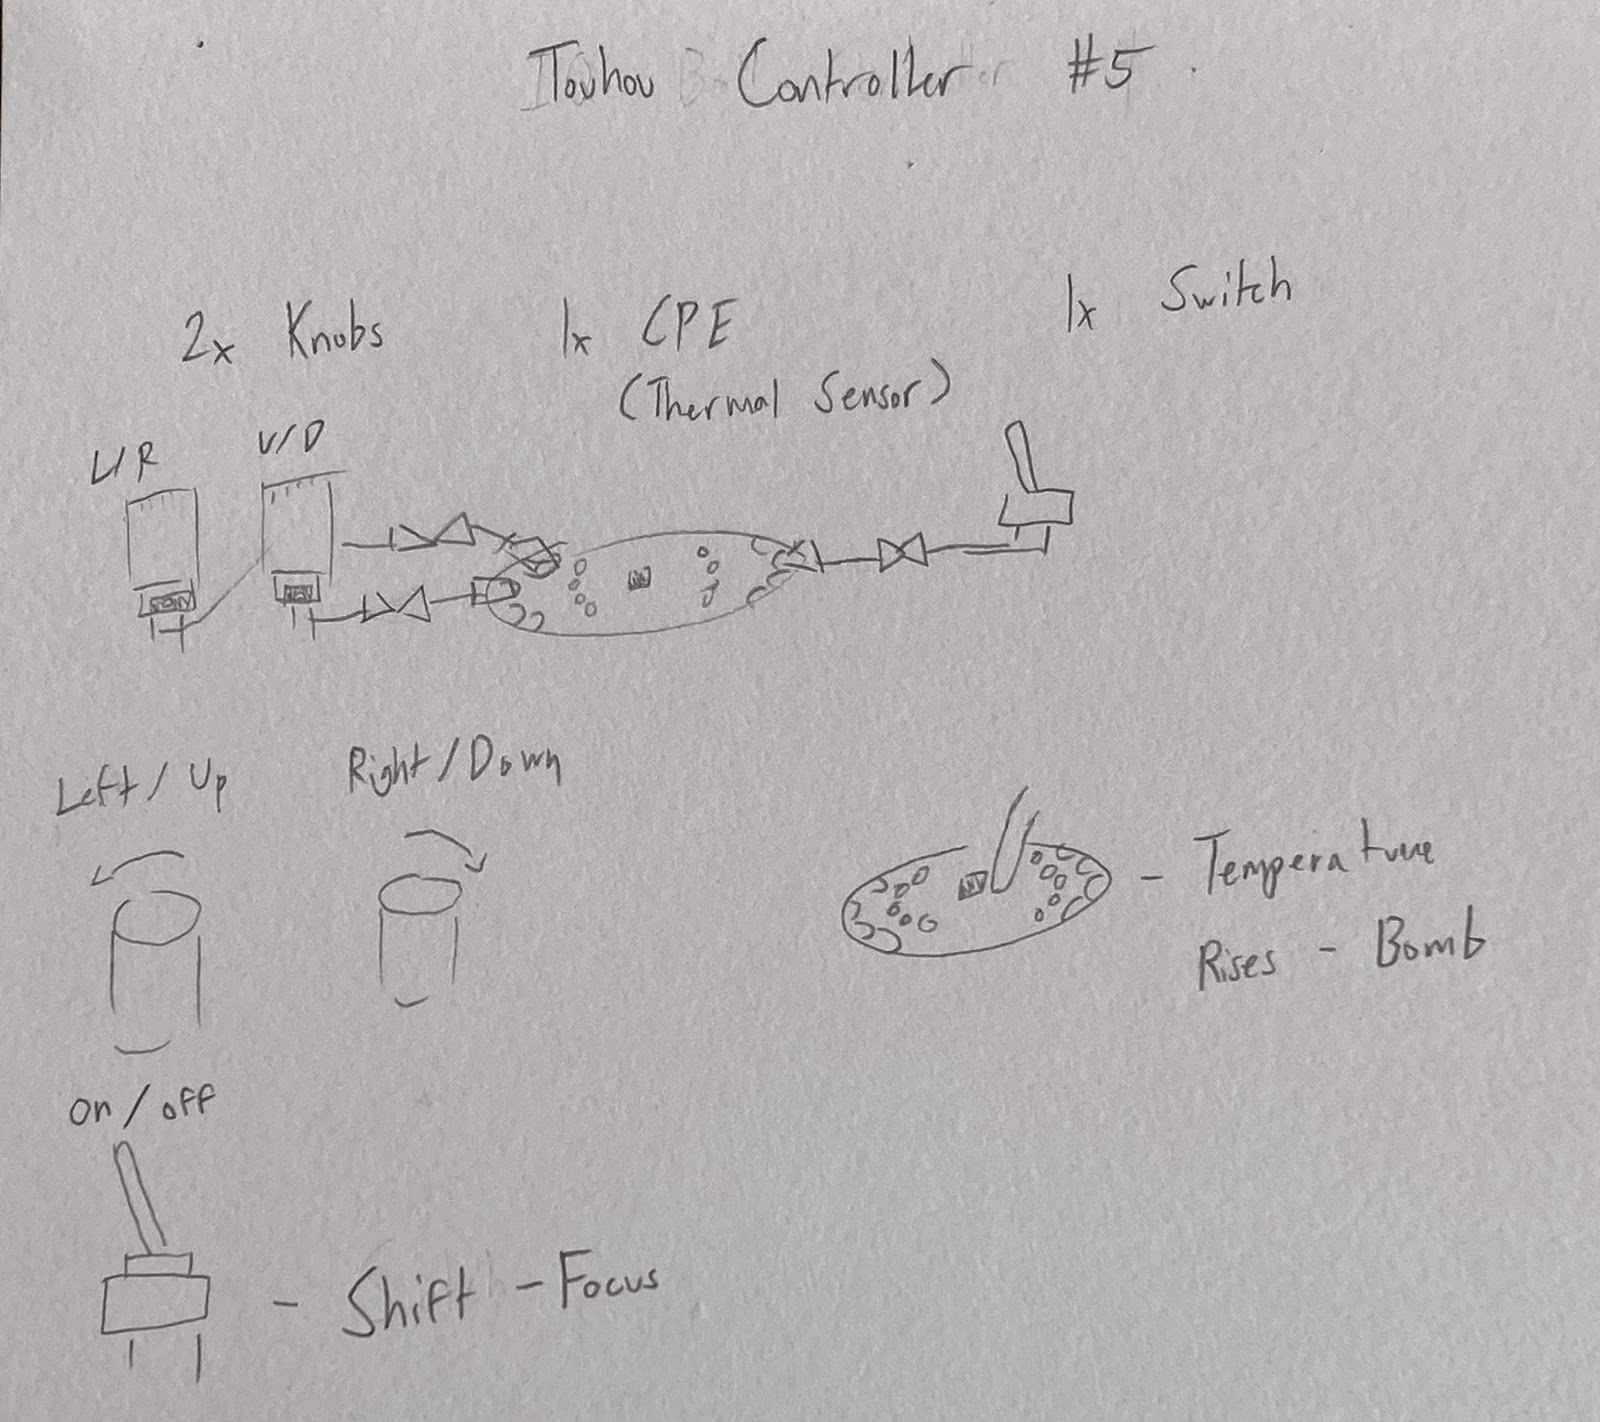 Touhou Controller #5
2x Knobs 1x CPE 1x Switch
(Thermal Sensor)
L/R U/D
Left / Up Right / Down
- Temperature
Rises - Bomb
on / off
- Shift - Focus